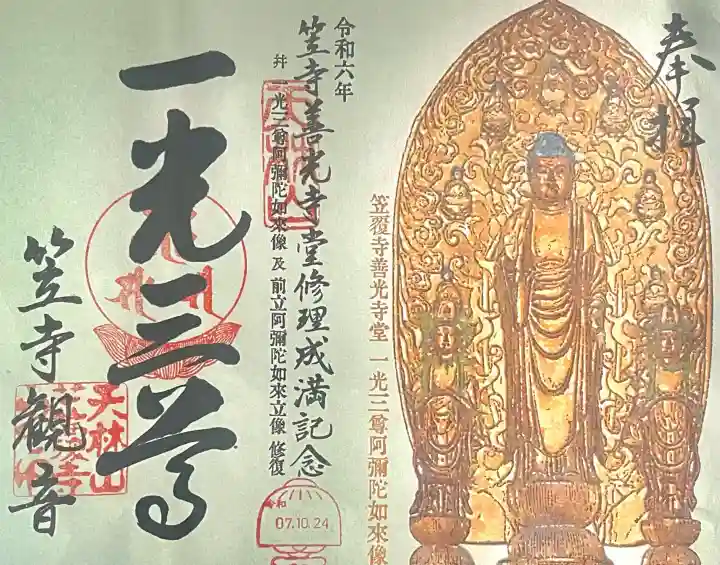 奉拝
笠覆寺善光寺堂 一光三尊阿彌陀如來像
令和六年
笠寺善光寺堂修理成満記念
并 一光三尊阿彌陀如來像 及 前立阿彌陀如來立像 修復
令和
07.10.24
一光三尊
笠寺觀音
天林山